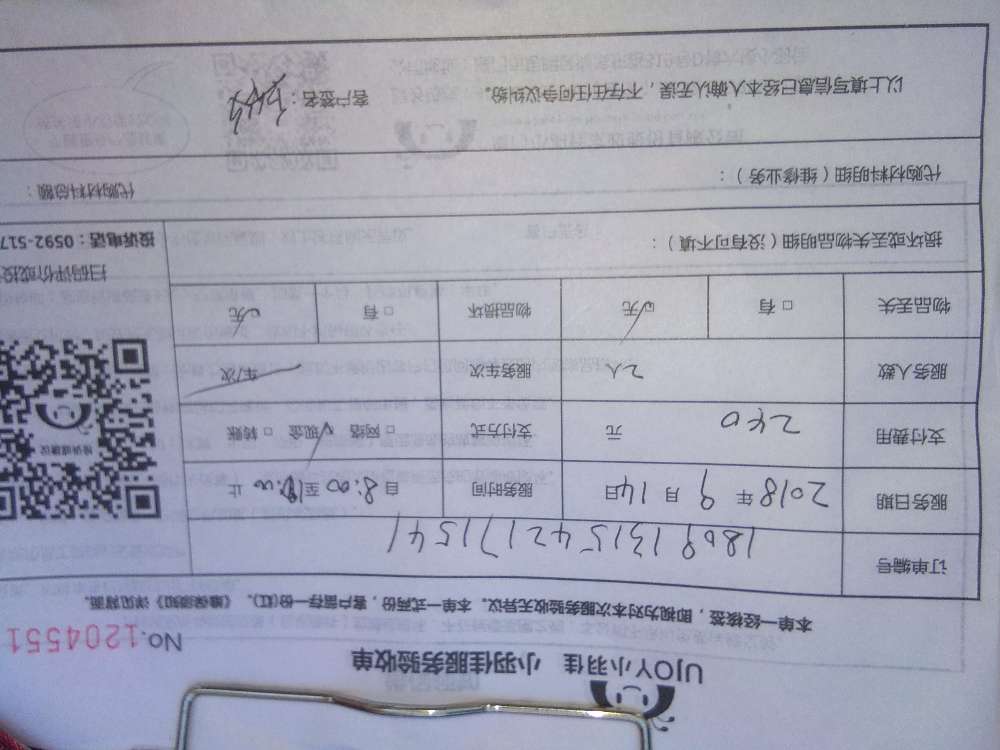 UJOY小羽佳 小羽佳服务验收单
No.1204551
本单一经核签，即视为对本次服务验收无异议。本单一式两份，客户留存一份(红)。《维保须知》详见背面。
订单编号 1809131542171541
服务日期 2018年9月14日 服务时间 自8:00至18:00止
支付费用 240 元 支付方式 □网络 √现金 □转账
服务人数 2人 服务车次 车/次
物品丢失 □有 ☑无 物品损坏 □有 ☑无
损坏或丢失物品明细（没有可不填）：
扫码评价或投
投诉电话：0592-517
代购材料明细（维修业务）： 代购材料总额：
以上填写信息已经本人确认无误，不存在任何争议纠纷。 客户签名：